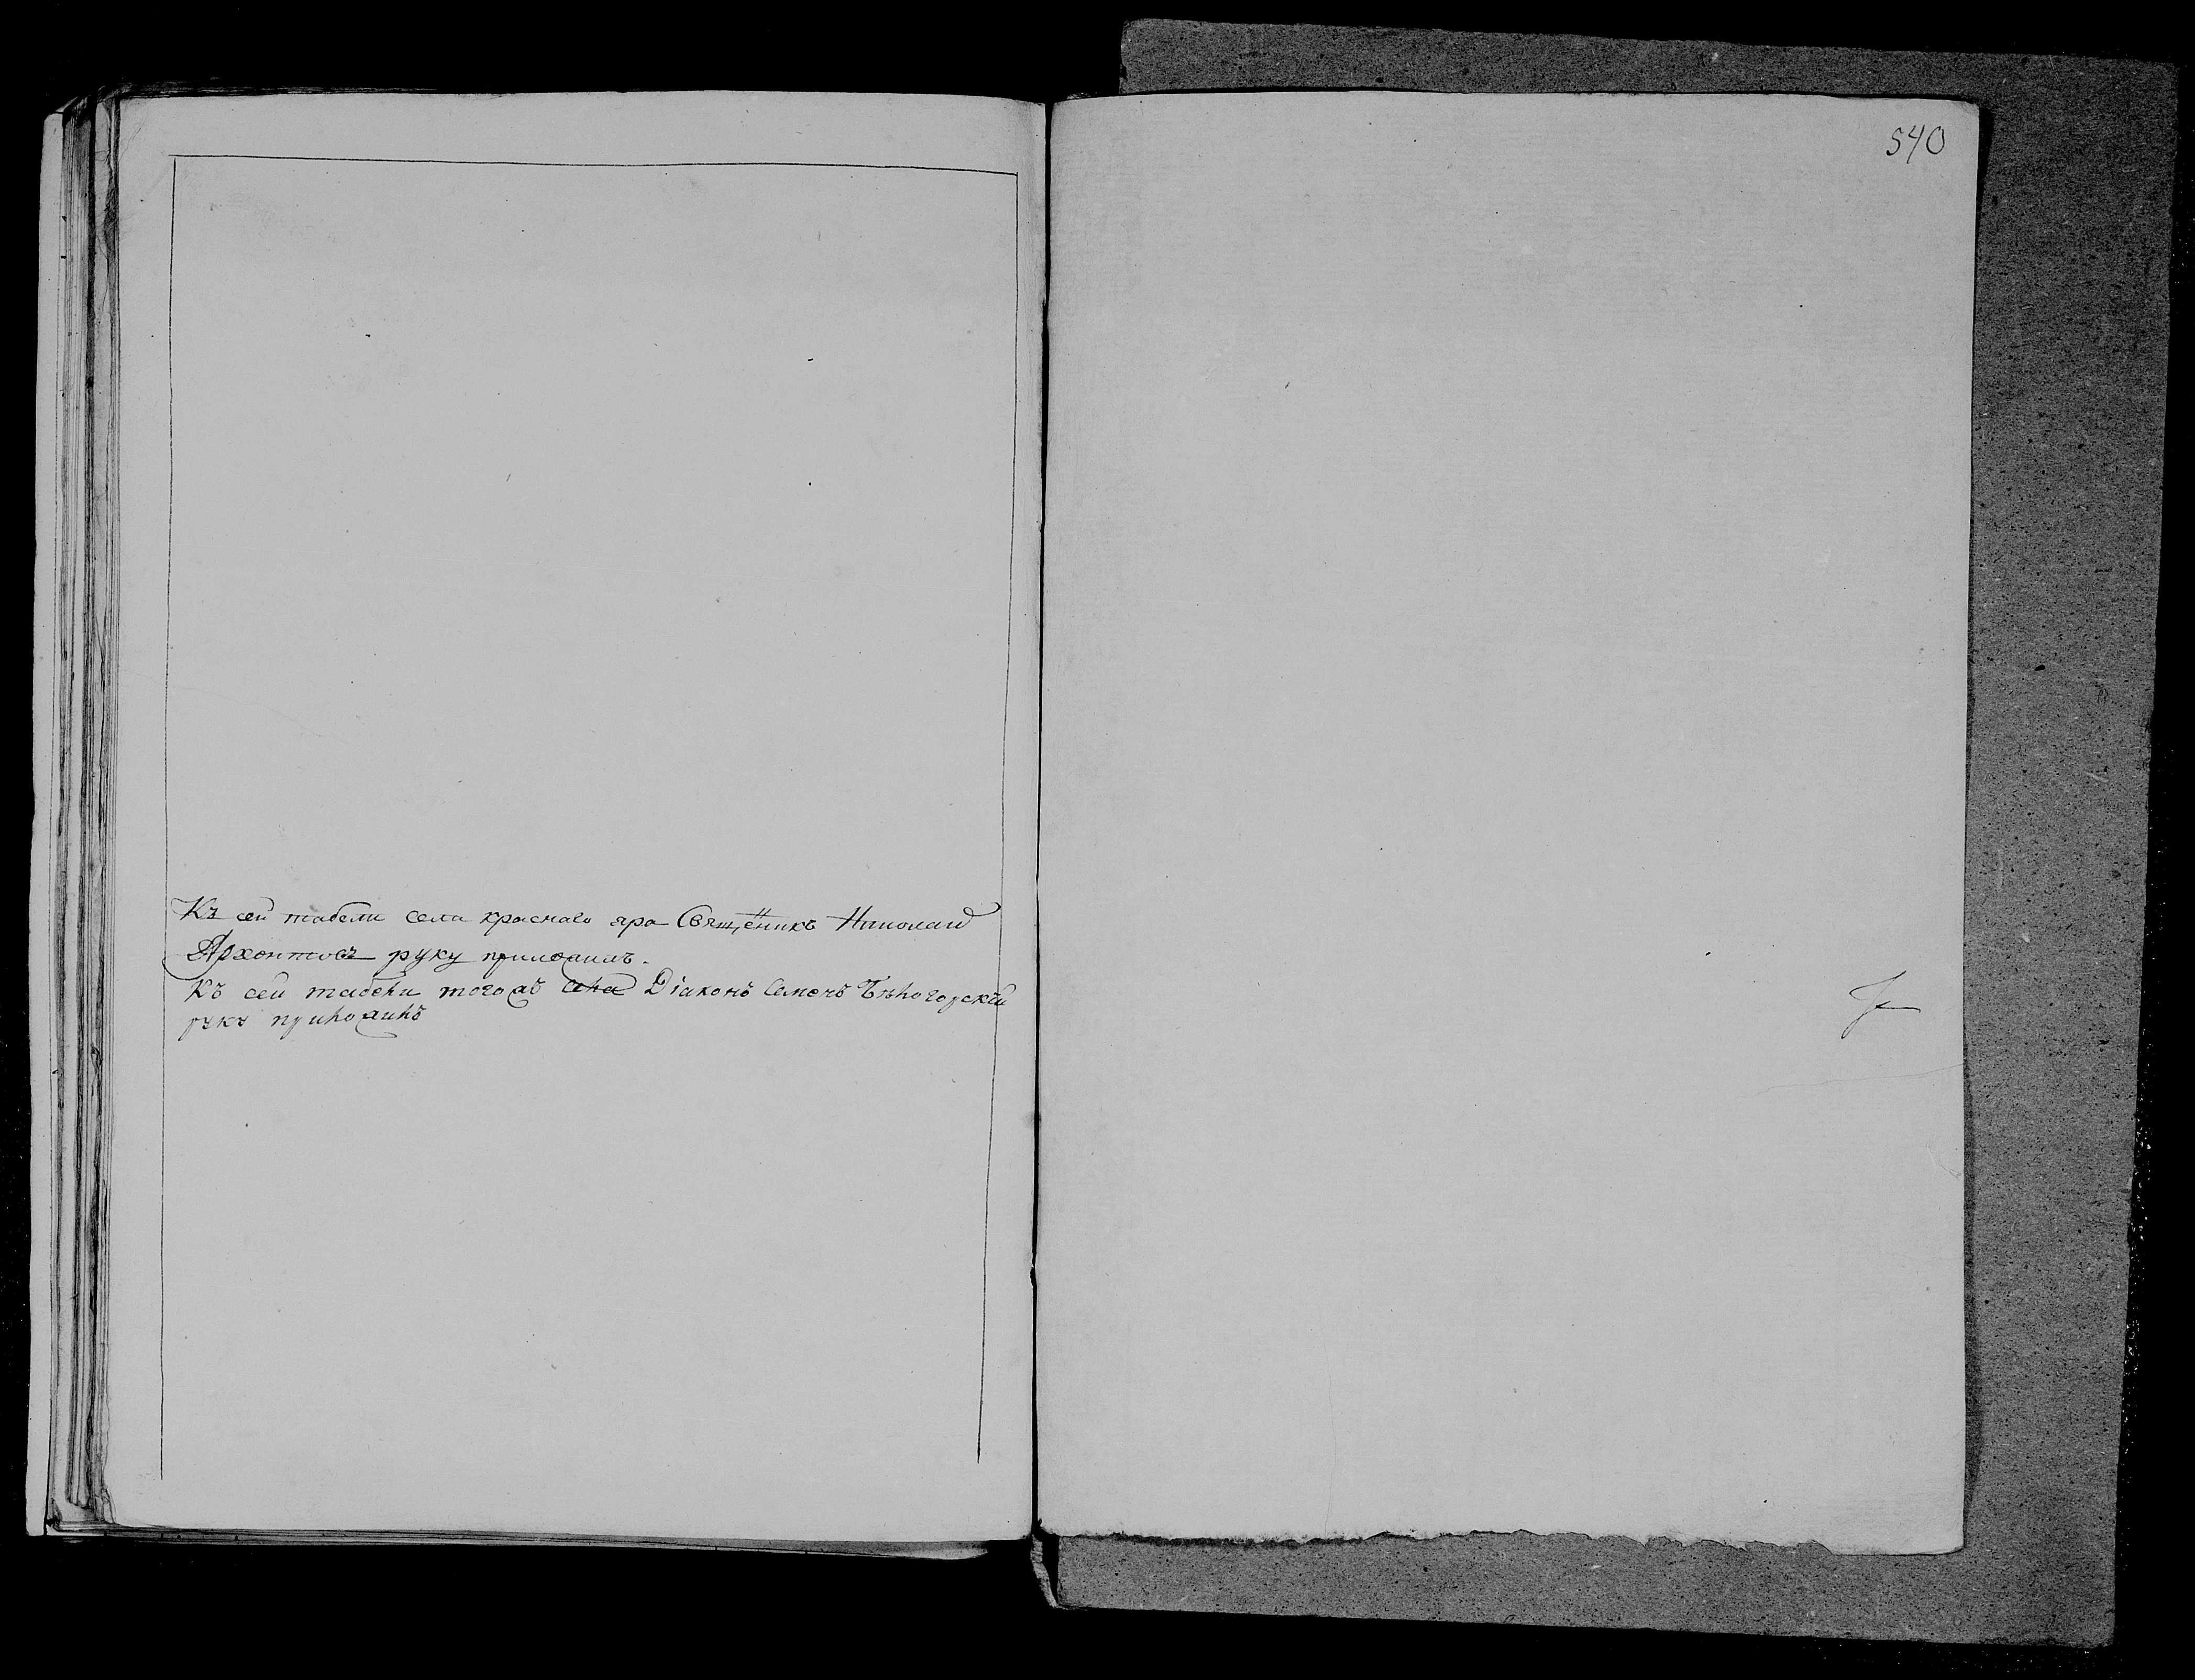 Къ сей табели села краснаго яра Священникъ Николай
Архонтовъ руку приложилъ.
Къ сей табели тогожъ села Діаконъ Семенъ Бѣлогорскій
руку приложилъ
540